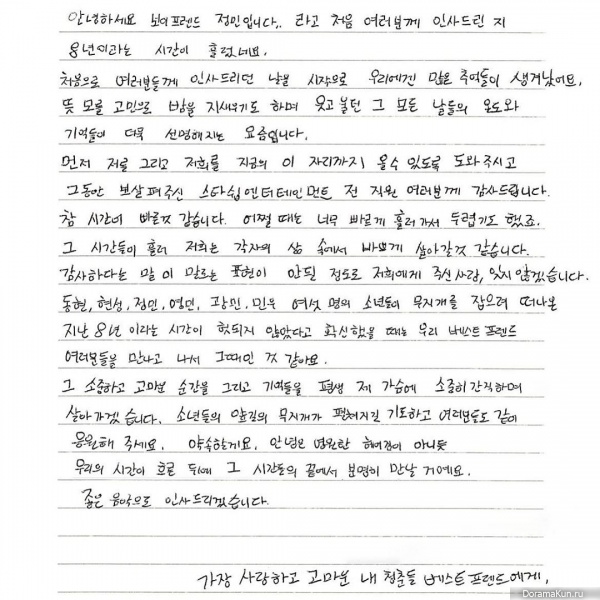 안녕하세요 보이프렌드 정민입니다.. 라고 처음 여러분께 인사드린 지
8년이라는 시간이 흘렀네요.
처음으로 여러분들께 인사드리던 날을 시작으로 우리에겐 많은 추억들이 생겨났어요.
뜻 모를 고민으로 밤을 지새우기도 하며 웃고 불던 그 모든 날들의 온도와
기억들이 더욱 선명해지는 요즘입니다.
먼저 저를 그리고 저희를 지금의 이 자리까지 올수 있도록 도와주시고
그동안 보살펴주신 스타쉽엔터테인먼트 전 직원 여러분께 감사드립니다.
참 시간이 빠른것 같습니다. 어쩔 때는 너무 빠르게 흘러가서 두렵기도 했죠.
그 시간들이 흘러 저희는 각자의 삶 속에서 바쁘게 살아갈것 같습니다.
감사하다는 말이 말로는 표현이 안될 정도로 저희에게 주신 사랑, 잊지 않겠습니다.
동현, 현성, 정민, 영민, 광민, 민우 여섯 명의 소년들이 무지개를 잡으려 떠나온
지난 8년 이라는 시간이 헛되지 않았다고 확신했을 때는 우리 베스트프렌드
여러분들을 만나고 나서 그때인 것 같아요.
그 소중하고 고마운 순간을 그리고 기억들을 평생 제 가슴에 소중히 간직하며
살아가겠습니다. 소년들의 앞길의 무지개가 펼쳐지길 기도하고 여러분들도 같이
응원해 주세요. 약속할게요. 안녕은 영원한 헤어짐이 아니듯
우리의 시간이 흐른 뒤에 그 시간들의 끝에서 분명히 만날 거예요.
좋은 음악으로 인사드리겠습니다.
가장 사랑하고 고마운 내 청춘들 베스트프렌드에게.
DoramaKun.ru